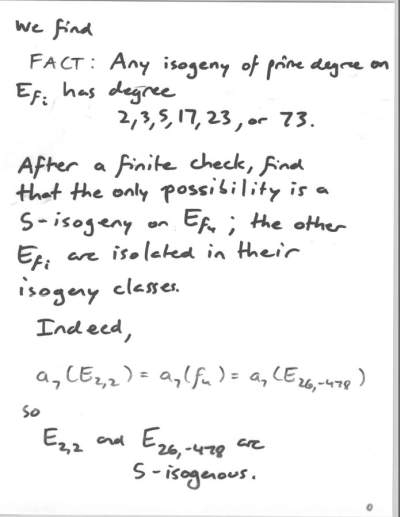 We find
FACT: Any isogeny of prime degree on
E_{f_i} has degree
2,3,5,17,23, or 73.
After a finite check, find
that the only possibility is a
5-isogeny on E_{f_4}; the other
E_{f_i} are isolated in their
isogeny classes.
Indeed,
a_7(E_{2,2}) = a_7(f_4) = a_7(E_{26,-478})
so
E_{2,2} and E_{26,-478} are
5-isogenous.